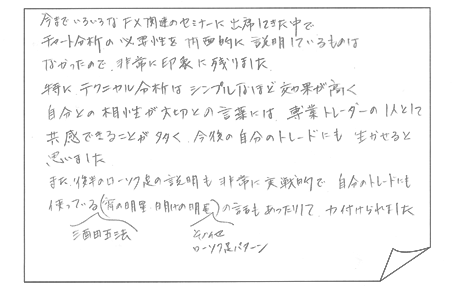 今までいろいろなFX関連のセミナーに出席してきた中で
チャート分析の必要性を内面的に説明しているものは
なかったので、非常に印象に残りました
特にテクニカル分析はシンプルなほど効果が高く
自分との相性が大切との言葉には、専業トレーダーの1人として
共感できることが多く、今後の自分のトレードにも生かせると
思いました
また、後半のローソク足の説明も非常に実戦的で 自分のトレードにも
使っている(宵の明星、明けの明星)の話もあったりして、力付けられました
酒田五法
ローソク足パターン